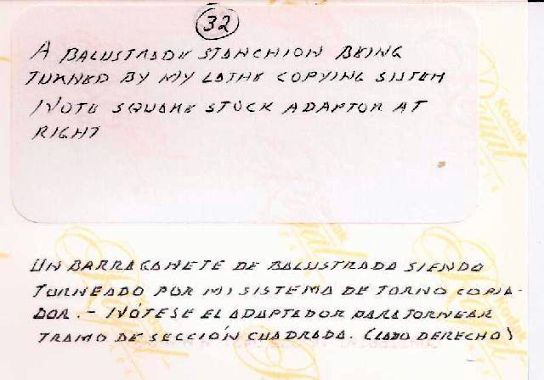 32
A BALUSTRADE STANCHION BEING
TURNED BY MY LATHE COPYING SISTEM
NOTE SQUARE STOCK ADAPTOR AT
RIGHT
Kodak
UN BARRAGANETE DE BALUSTRADA SIENDO
TORNEADO POR MI SISTEMA DE TORNO COPIA-
DOR. - NÓTESE EL ADAPTADOR PARA TORNEAR
TRAMO DE SECCIÓN CUADRADA. (LADO DERECHO)